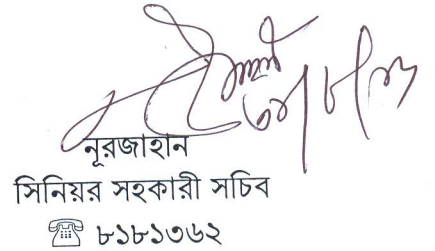 নূরজাহান
সিনিয়র সহকারী সচিব
☎ ৮১৮১৩৬২